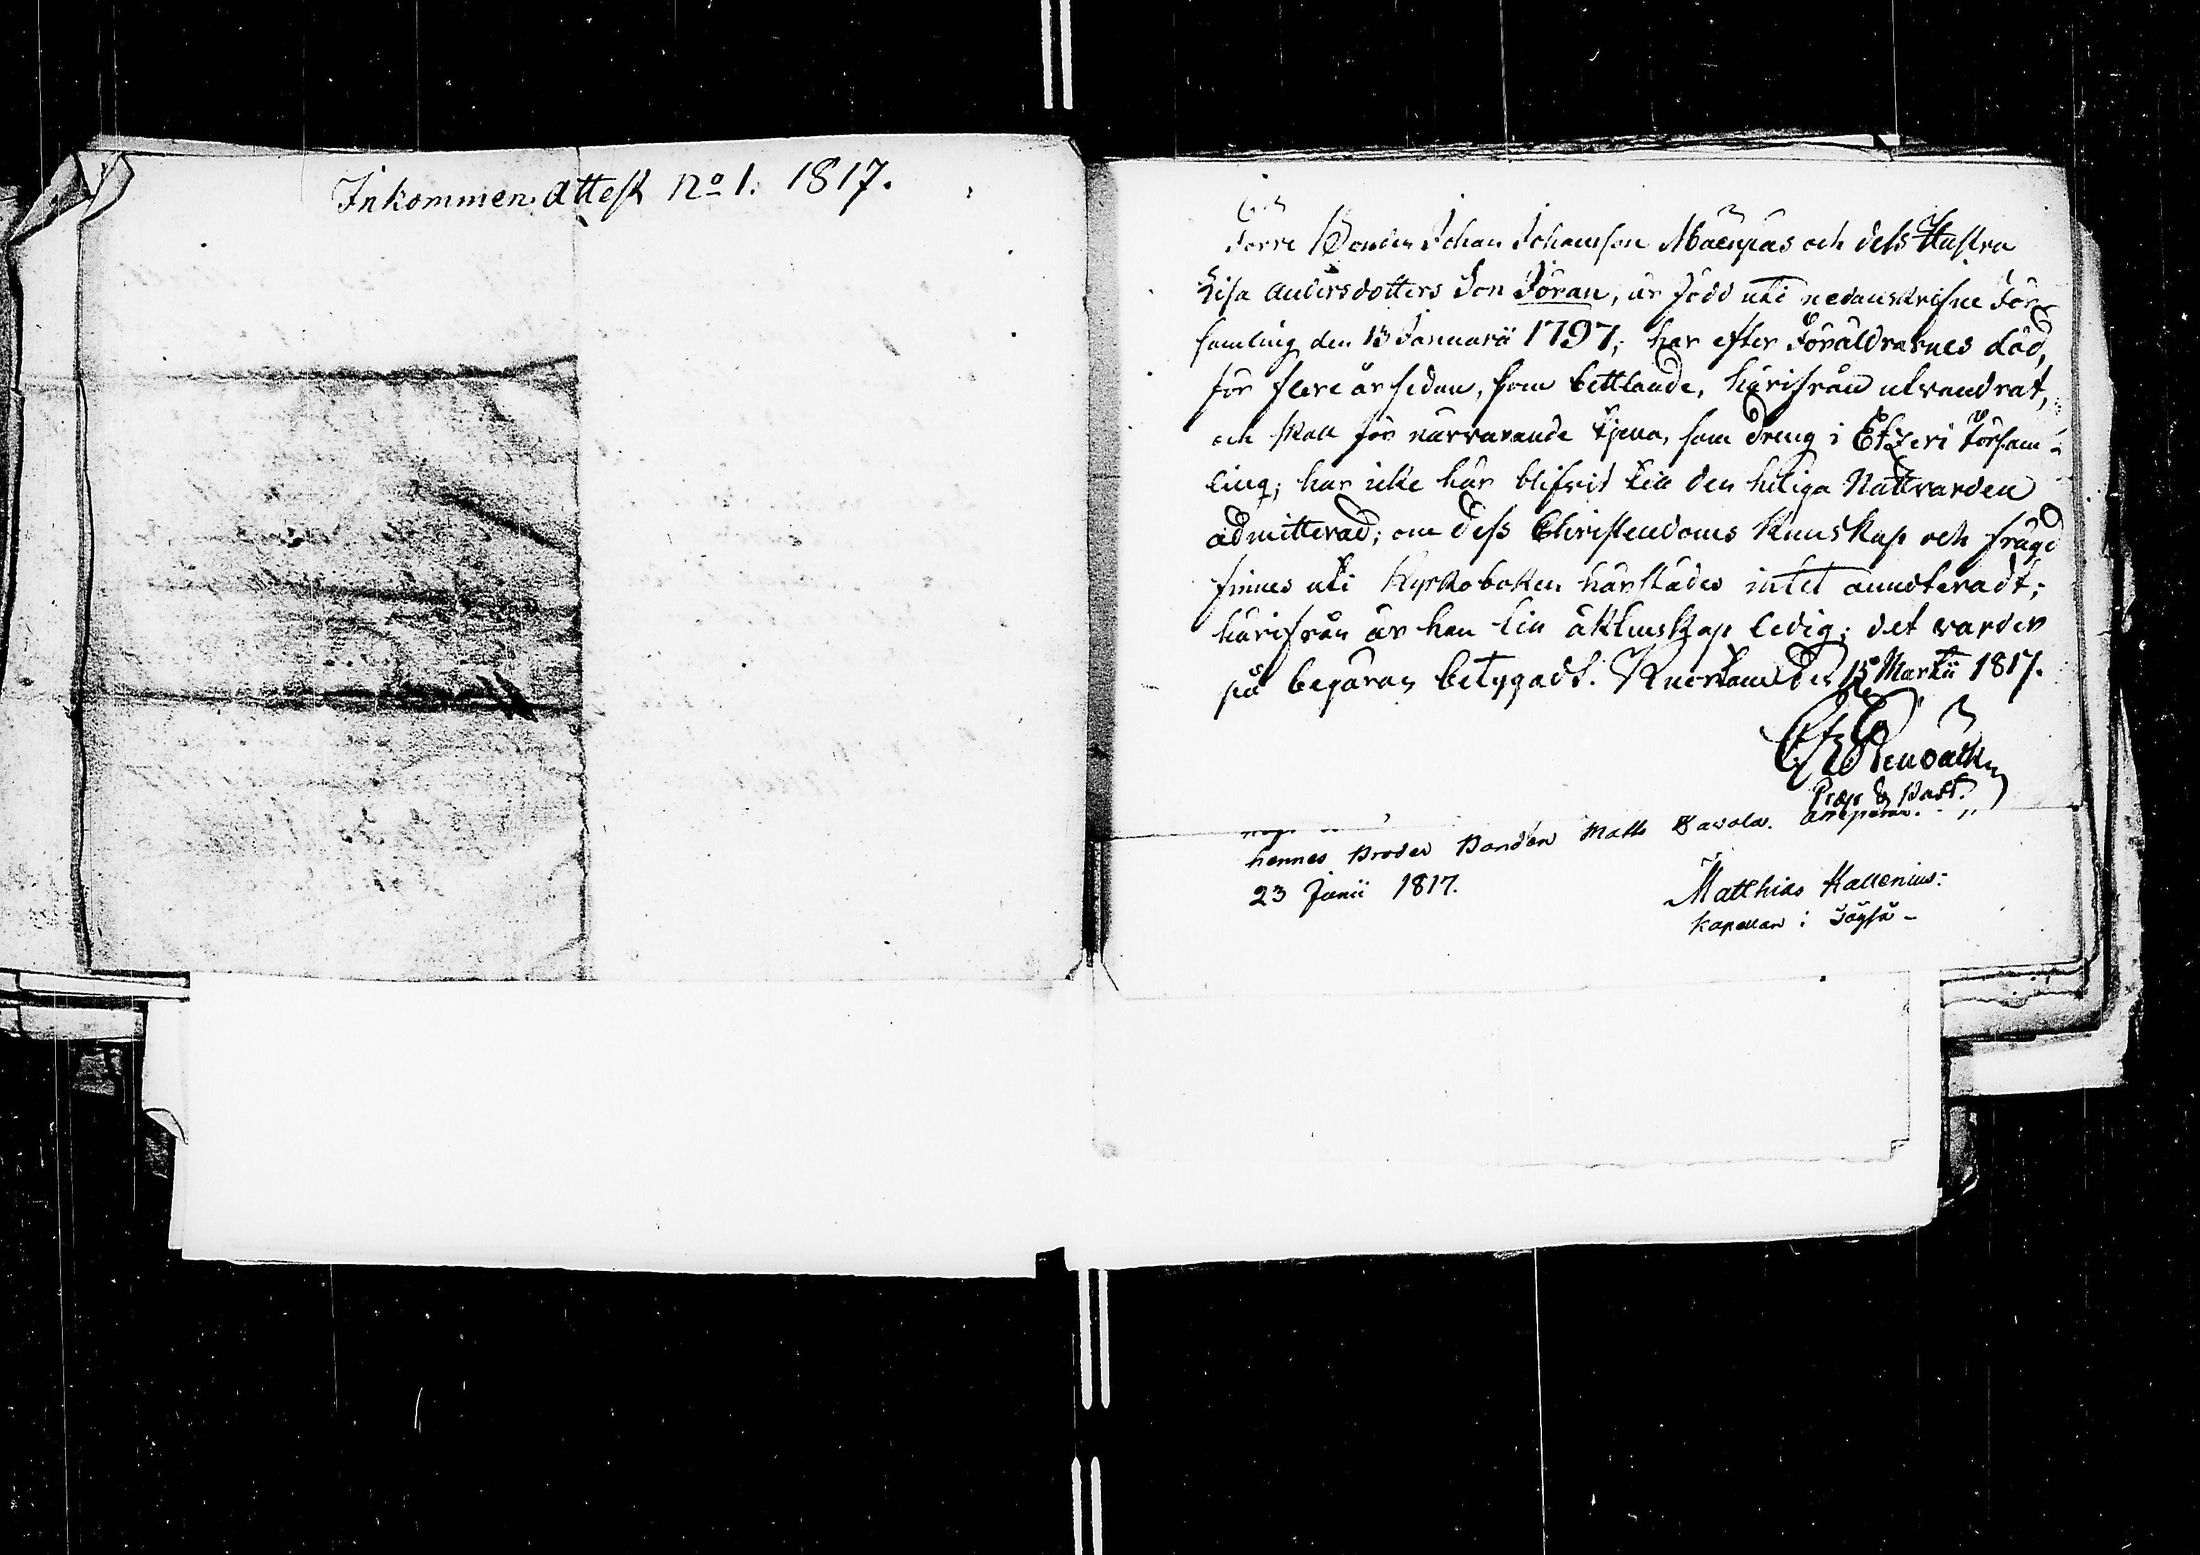 Inkommen Attest No 1. 1817.
Förre Bonden Johan Johansson Mäenpääs och dess Hustru
Lisa Andersdotters Son Jöran, är född uti nedanskrifne För-
samling den 15 Januarii 1797; har efter Föräldrarnes död,
för flere år sedan, som bettlande, härifrån utvandrat,
och skall för närvarande tjena, som dreng i Etzeri Försam-
ling; har icke här blifvit till den heliga Nattvarden
admitterad; om dess Christendoms Kunskap och frägd
finnes uti Kyrkoboken härstädes intet annoteradt;
härifrån är han till äktenskap ledig; det varder
på begäran betygadt. Kuortane den 15 Martii 1817.
Præp & Past.
hennes Broder Bonden Matts
23 Junii 1817.
Matthias Hallenius:
Kapellan i